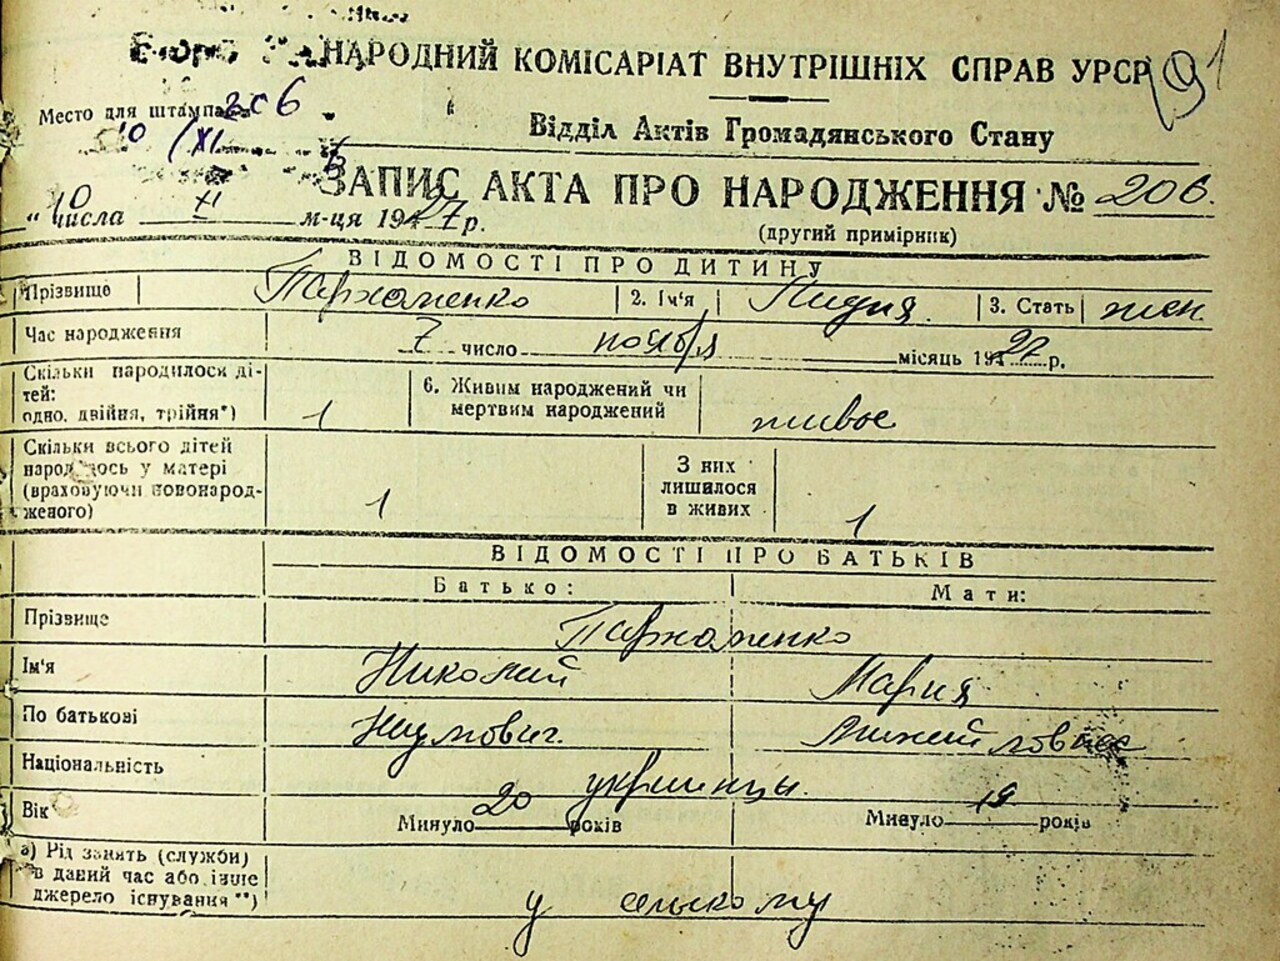 НАРОДНИЙ КОМІСАРІАТ ВНУТРІШНІХ СПРАВ УРСР
191
Место для штампа
206
10/XI
Відділ Актів Громадянського Стану
ЗАПИС АКТА ПРО НАРОДЖЕННЯ № 206.
"10 числа XI м-ця 1927 р.
(другий примірник)
ВІДОМОСТІ ПРО ДИТИНУ
Прізвище Пархоменко 2. Ім'я Лидия. 3. Стать жен.
Час народження 7 число ноября місяць 1927 р.
Скільки народилося дітей: одно, двійня, трійня*) 1 6. Живим народжений чи мертвим народжений живое
Скільки всього дітей народилось у матері (враховуючи новонародженого) 1 З них лишилося в живих 1
ВІДОМОСТІ ПРО БАТЬКІВ
Батько: Мати:
Прізвище Пархоменко
Ім'я Николай Мария
По батькові Наумович.
Національність украинцы.
Вік Минуло 20 років Минуло 19 років
а) Рід занять (службн) в даний час або інше джерело існування**) у